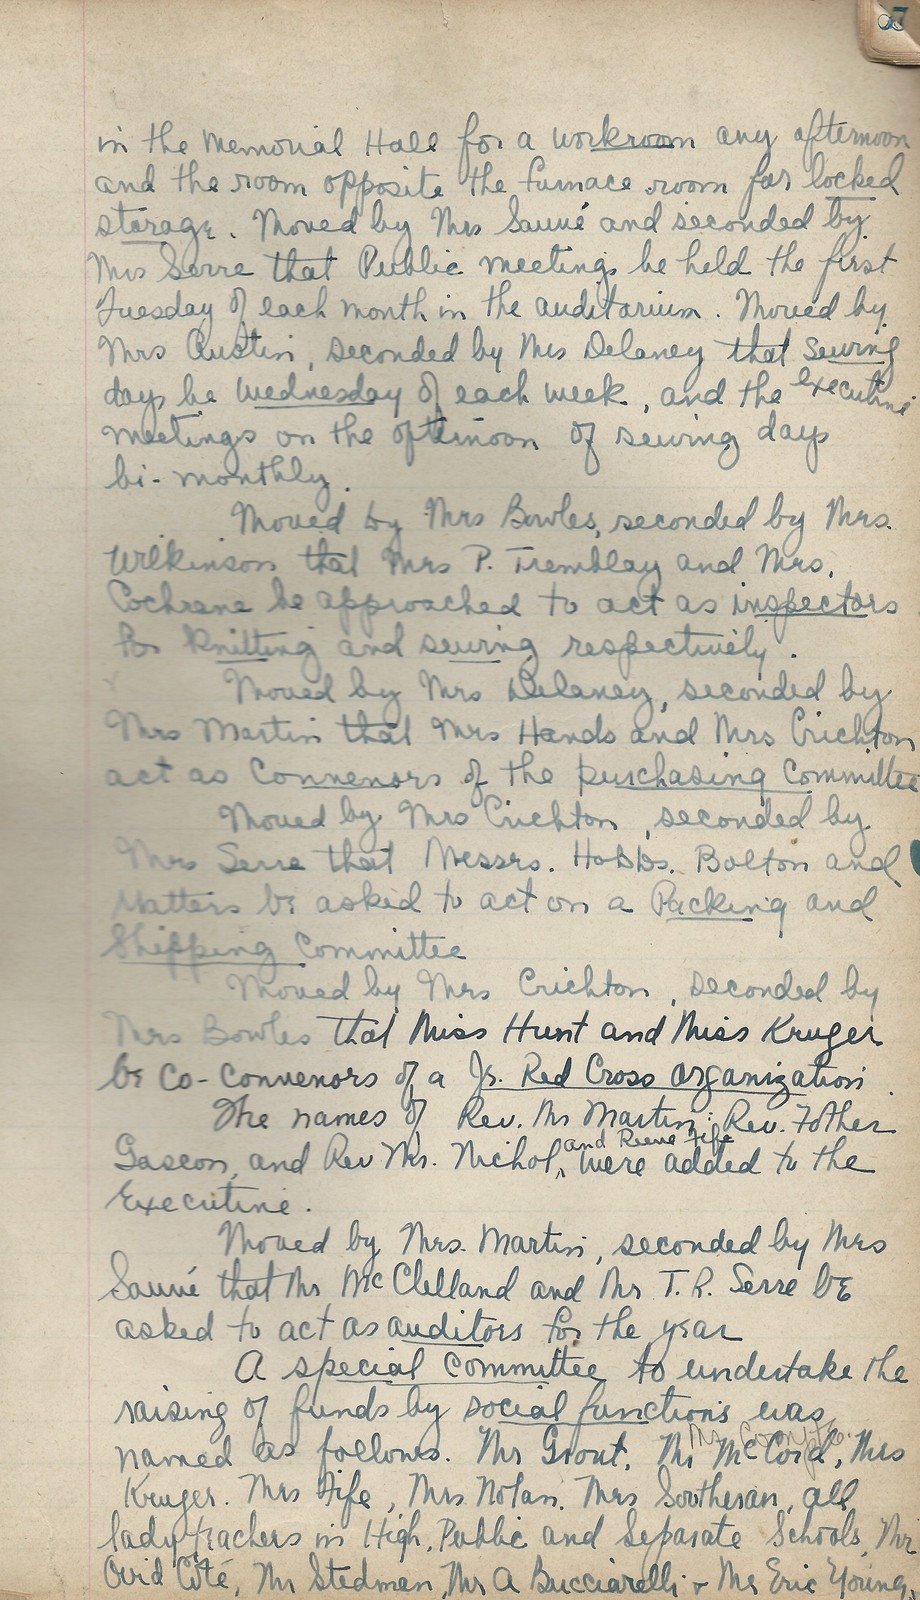 87
in the Memorial Hall for a workroom any afternoon
and the room opposite the furnace room for locked
storage. Moved by Mrs Sauvé and seconded by
Mrs Serre that Public meetings be held the first
Tuesday of each month in the auditorium. Moved by
Mrs Austin, seconded by Mrs Delaney that sewing
days be Wednesday of each week, and the executive
meetings on the afternoon of sewing days
bi-monthly.
Moved by Mrs Bowles, seconded by Mrs.
Wilkinson that Mrs P. Tremblay and Mrs.
Cochrane be approached to act as inspectors
for knitting and sewing respectively.
Moved by Mrs Delaney, seconded by
Mrs Martin that Mrs Hands and Mrs Crichton
act as Convenors of the purchasing Committee
Moved by Mrs Crichton, seconded by
Mrs Serre that Messrs. Hobbs. Bolton and
Matters be asked to act on a Packing and
Shipping Committee
Moved by Mrs Crichton, seconded by
Mrs Bowles that Miss Hunt and Miss Kruger
be Co-Convenors of a Jr. Red Cross organization
The names of Rev. Mr Martin; Rev. Father
Gascon, and Rev Mr. Nichol, and Reeve Fife were added to the
Executive.
Moved by Mrs. Martin, seconded by Mrs
Sauvé that Mr McClelland and Mr T. R. Serre be
asked to act as auditors for the year
A special committee to undertake the
raising of funds by social functions was
named as follows. Mr Grout, Mr McCord, Mrs
Kruger. Mrs Fife, Mrs Nolan. Mrs Southeran, all
lady teachers in High, Public and Separate Schools, Mr
Ovid Coté, Mr Stedman, Mr A Bucciarelli + Mr Eric Young,